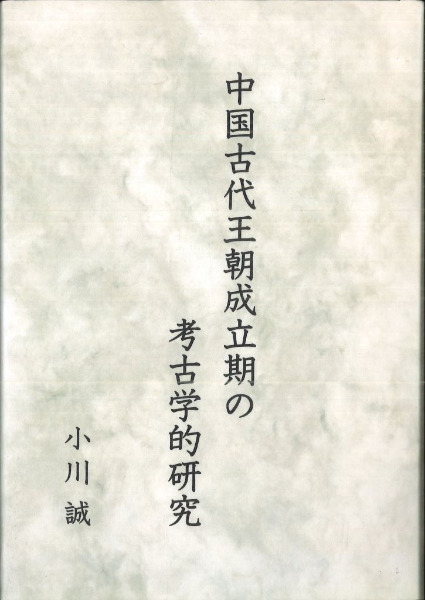 中国古代王朝成立期の
考古学的研究
小川 誠